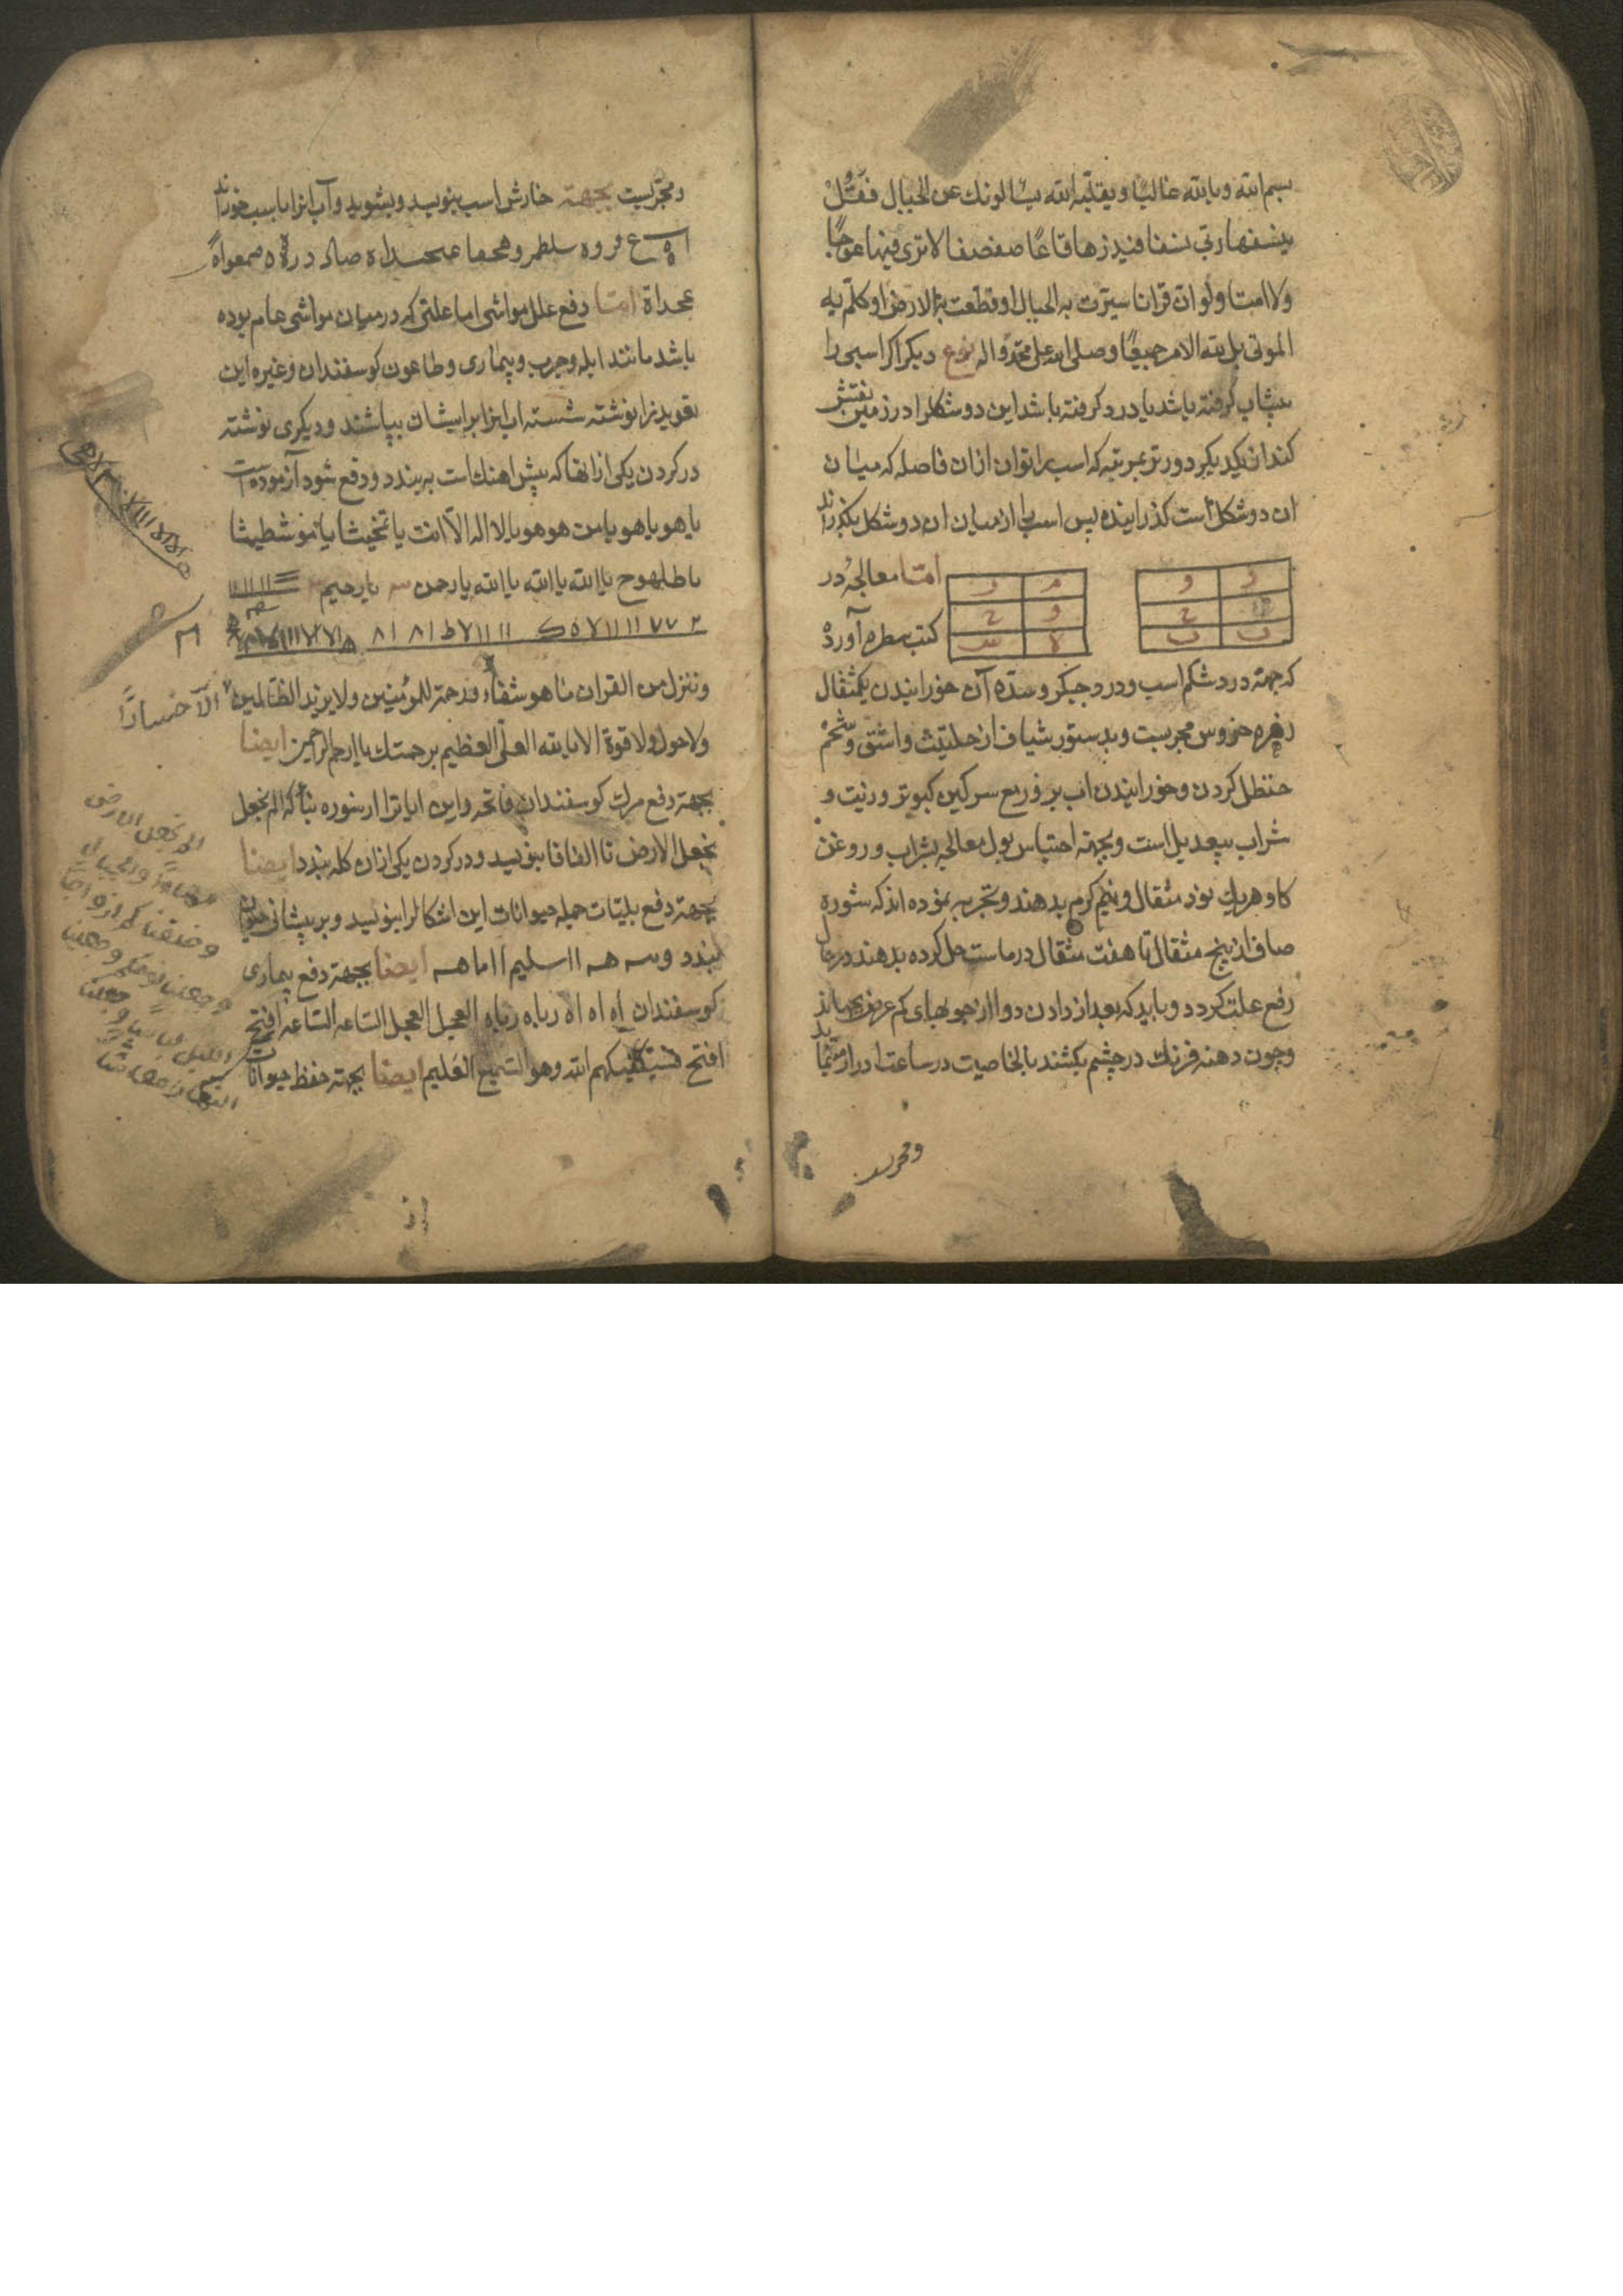 بسم الله و بالله غالبا و یقلبه الله یسالونك عن الجبال فقل
ینسفها ربی نسفا فیذرها قاعا صفصفا لا تری فیها عوجا
ولا امتا ولو ان قرانا سیرت به الجبال او قطعت به الارض او کلم به
الموتی بل لله الامر جمیعا وصلی الله علی محمد و اله نوع دیکر اکر اسبی را
پیشاب کرفته باشد یا درد کرفته باشد این دو شکلرا در زمین نقش
کنند از یکدیکر دورتر بمرتبه که اسب را توان ازان فاصله که میان
ان دو شکل است کذرانیده پس اسب را از میان ان دو شکل بکذرانند
اما معالجه در
کتب بیطره آورده
که جهته درد شکم اسب و درد جیکر و سده آن خورانیدن یکمثقال
زهره خروس مجربست و بدستور شیاف از حلتیث و اشق و شحم
حنظل کردن و خورانیدن اب بر فربع سرکین کبوتر و زیت و
شراب بیعدیل است و بجهته احتباس بول معالجه بشراب و روغن
کاو هریك نود مثقال و نیم کرم بدهند و تجربه نموده اند که شوره
صاف از پنج مثقال تا هفت مثقال در ماست حل کرده بدهند در حال
رفع علت کردد و باید که بعد از دادن دوا از جوبهای کم عرض بجهانند
و چون دهنه فرنك در چشم بکشند بالخاصیت در ساعت ادرار مینماید
و مجربست
و مجربست بجهته خارش اسب بنویسد و بشوید و آب انرا باسب خوراند
عجداة اما دفع علل مواشی اما علتی که در میان مواشی عام بوده
باشد مانند ابله و جرب و بیماری و طاعون کوسفندان و غیره این
تعویذ را نوشته شسته اب انرا بر ایشان بپاشند و دیکری نوشته
در کردن یکی از انها که پیش اهنك است به بندد و دفع شود آزموده است
یا هو یا هو یا من هو هو یا لا اله الا انت یا تخیثا یا نموشطیثا
یا طلهوج یا الله یا الله یا الله یا رحمن یا رحیم
و ننزل من القران ما هو شفاء و رحمة للمؤمنین ولا یزید الظالمین الا خسارا
ولا حول ولا قوة الا بالله العلی العظیم برحمتك یا ارحم الراحمین ایضا
بجهته دفع مرك کوسفندان فاتحه و این ایاترا از سوره نبأ که الم نجعل
نجعل الارض تا الفافا بنویسد و در کردن یکی ازان کله بندد ایضا
بجهته دفع بلیات جمله حیوانات این اشکالرا بنویسد و بر پیشانی حیوان
بندد و سه هـ ۱۱ سلیم ۱۱ اما هـ ایضا بجهته دفع بیماری
کوسفندان اه اه اه رباه رباه العجل العجل الساعه الساعه افتح
افتح فسیکفیکهم الله و هو السمیع العلیم ایضا بجهته حفظ حیوانات
الم نجعل الارض
مهادا و الجبال
و خلقناکم ازواجا
و جعلنا نومکم و جعلنا
اللیل لباسا و جعلنا
النهار معاشا
از